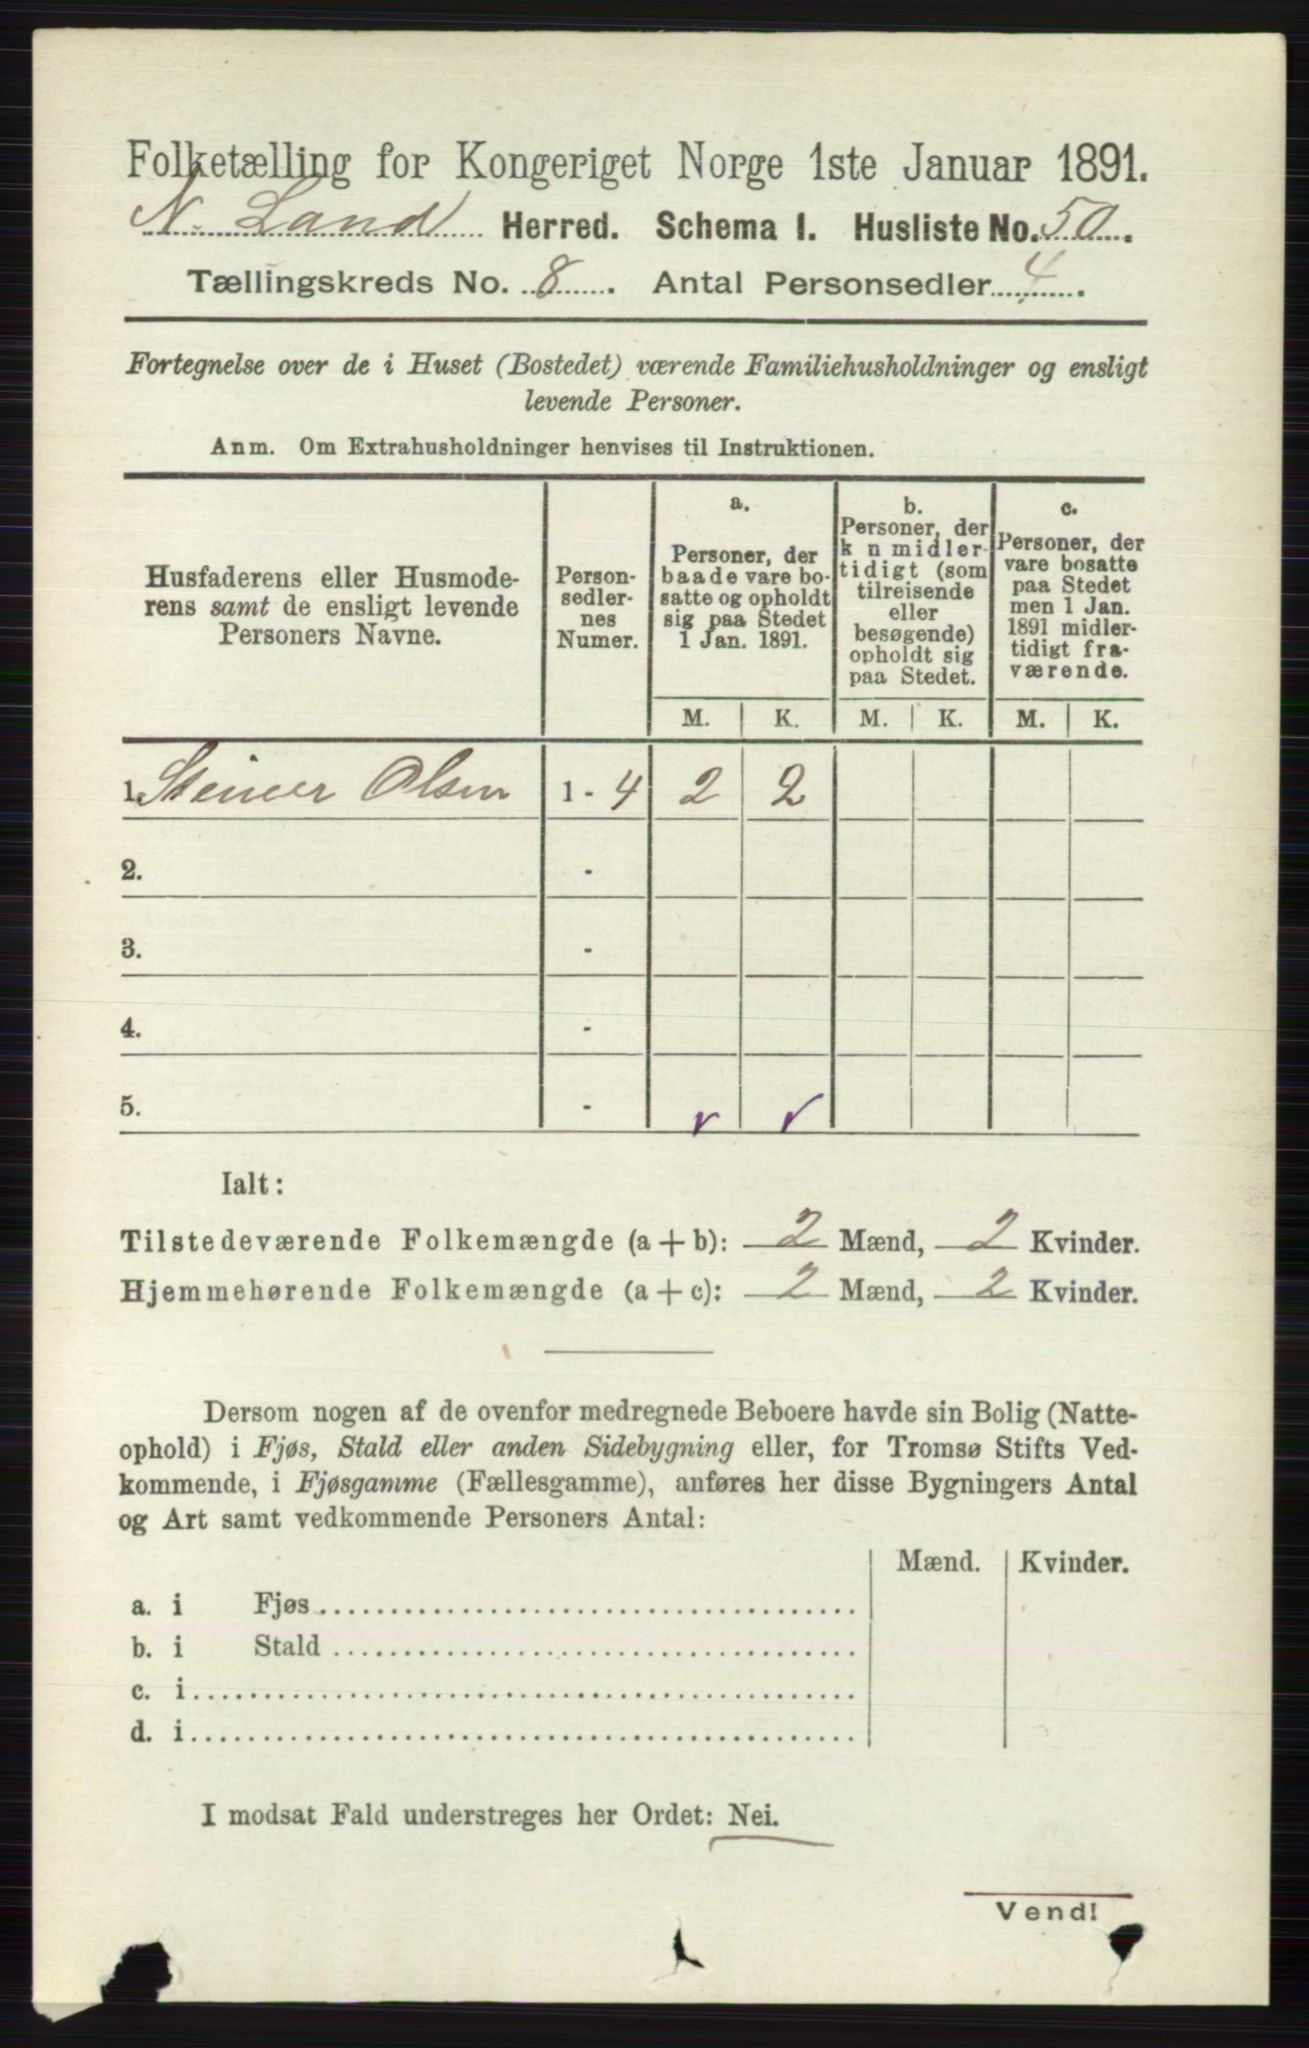 Folketælling for Kongeriget Norge 1ste Januar 1891.
N. Land Herred. Schema I. Husliste No. 50.
Tællingskreds No. 8. Antal Personsedler 4.
Fortegnelse over de i Huset (Bostedet) værende Familiehusholdninger og ensligt
levende Personer.
Anm. Om Extrahusholdninger henvises til Instruktionen.
Husfaderens eller Husmode-
rens samt de ensligt levende
Personers Navne.
Person-
sedler-
nes
Numer.
a.
Personer, der
baade vare bo-
satte og opholdt
sig paa Stedet
1 Jan. 1891.
b.
Personer, der
k n midler-
tidigt (som
tilreisende
eller
besøgende)
opholdt sig
paa Stedet.
c.
Personer, der
vare bosatte
paa Stedet
men 1 Jan.
1891 midler-
tidigt fra-
værende.
M. K. M. K. M. K.
1. Olsen 1 - 4 2 2
2. -
3. -
4. -
5. -
Ialt:
Tilstedeværende Folkemængde (a + b): 2 Mænd, 2 Kvinder.
Hjemmehørende Folkemængde (a + c): 2 Mænd, 2 Kvinder.
Dersom nogen af de ovenfor medregnede Beboere havde sin Bolig (Natte-
ophold) i Fjøs, Stald eller anden Sidebygning eller, for Tromsø Stifts Ved-
kommende, i Fjøsgamme (Fællesgamme), anføres her disse Bygningers Antal
og Art samt vedkommende Personers Antal:
Mænd. Kvinder.
a. i Fjøs
b. i Stald
c. i
d. i
I modsat Fald understreges her Ordet: Nei.
Vend!